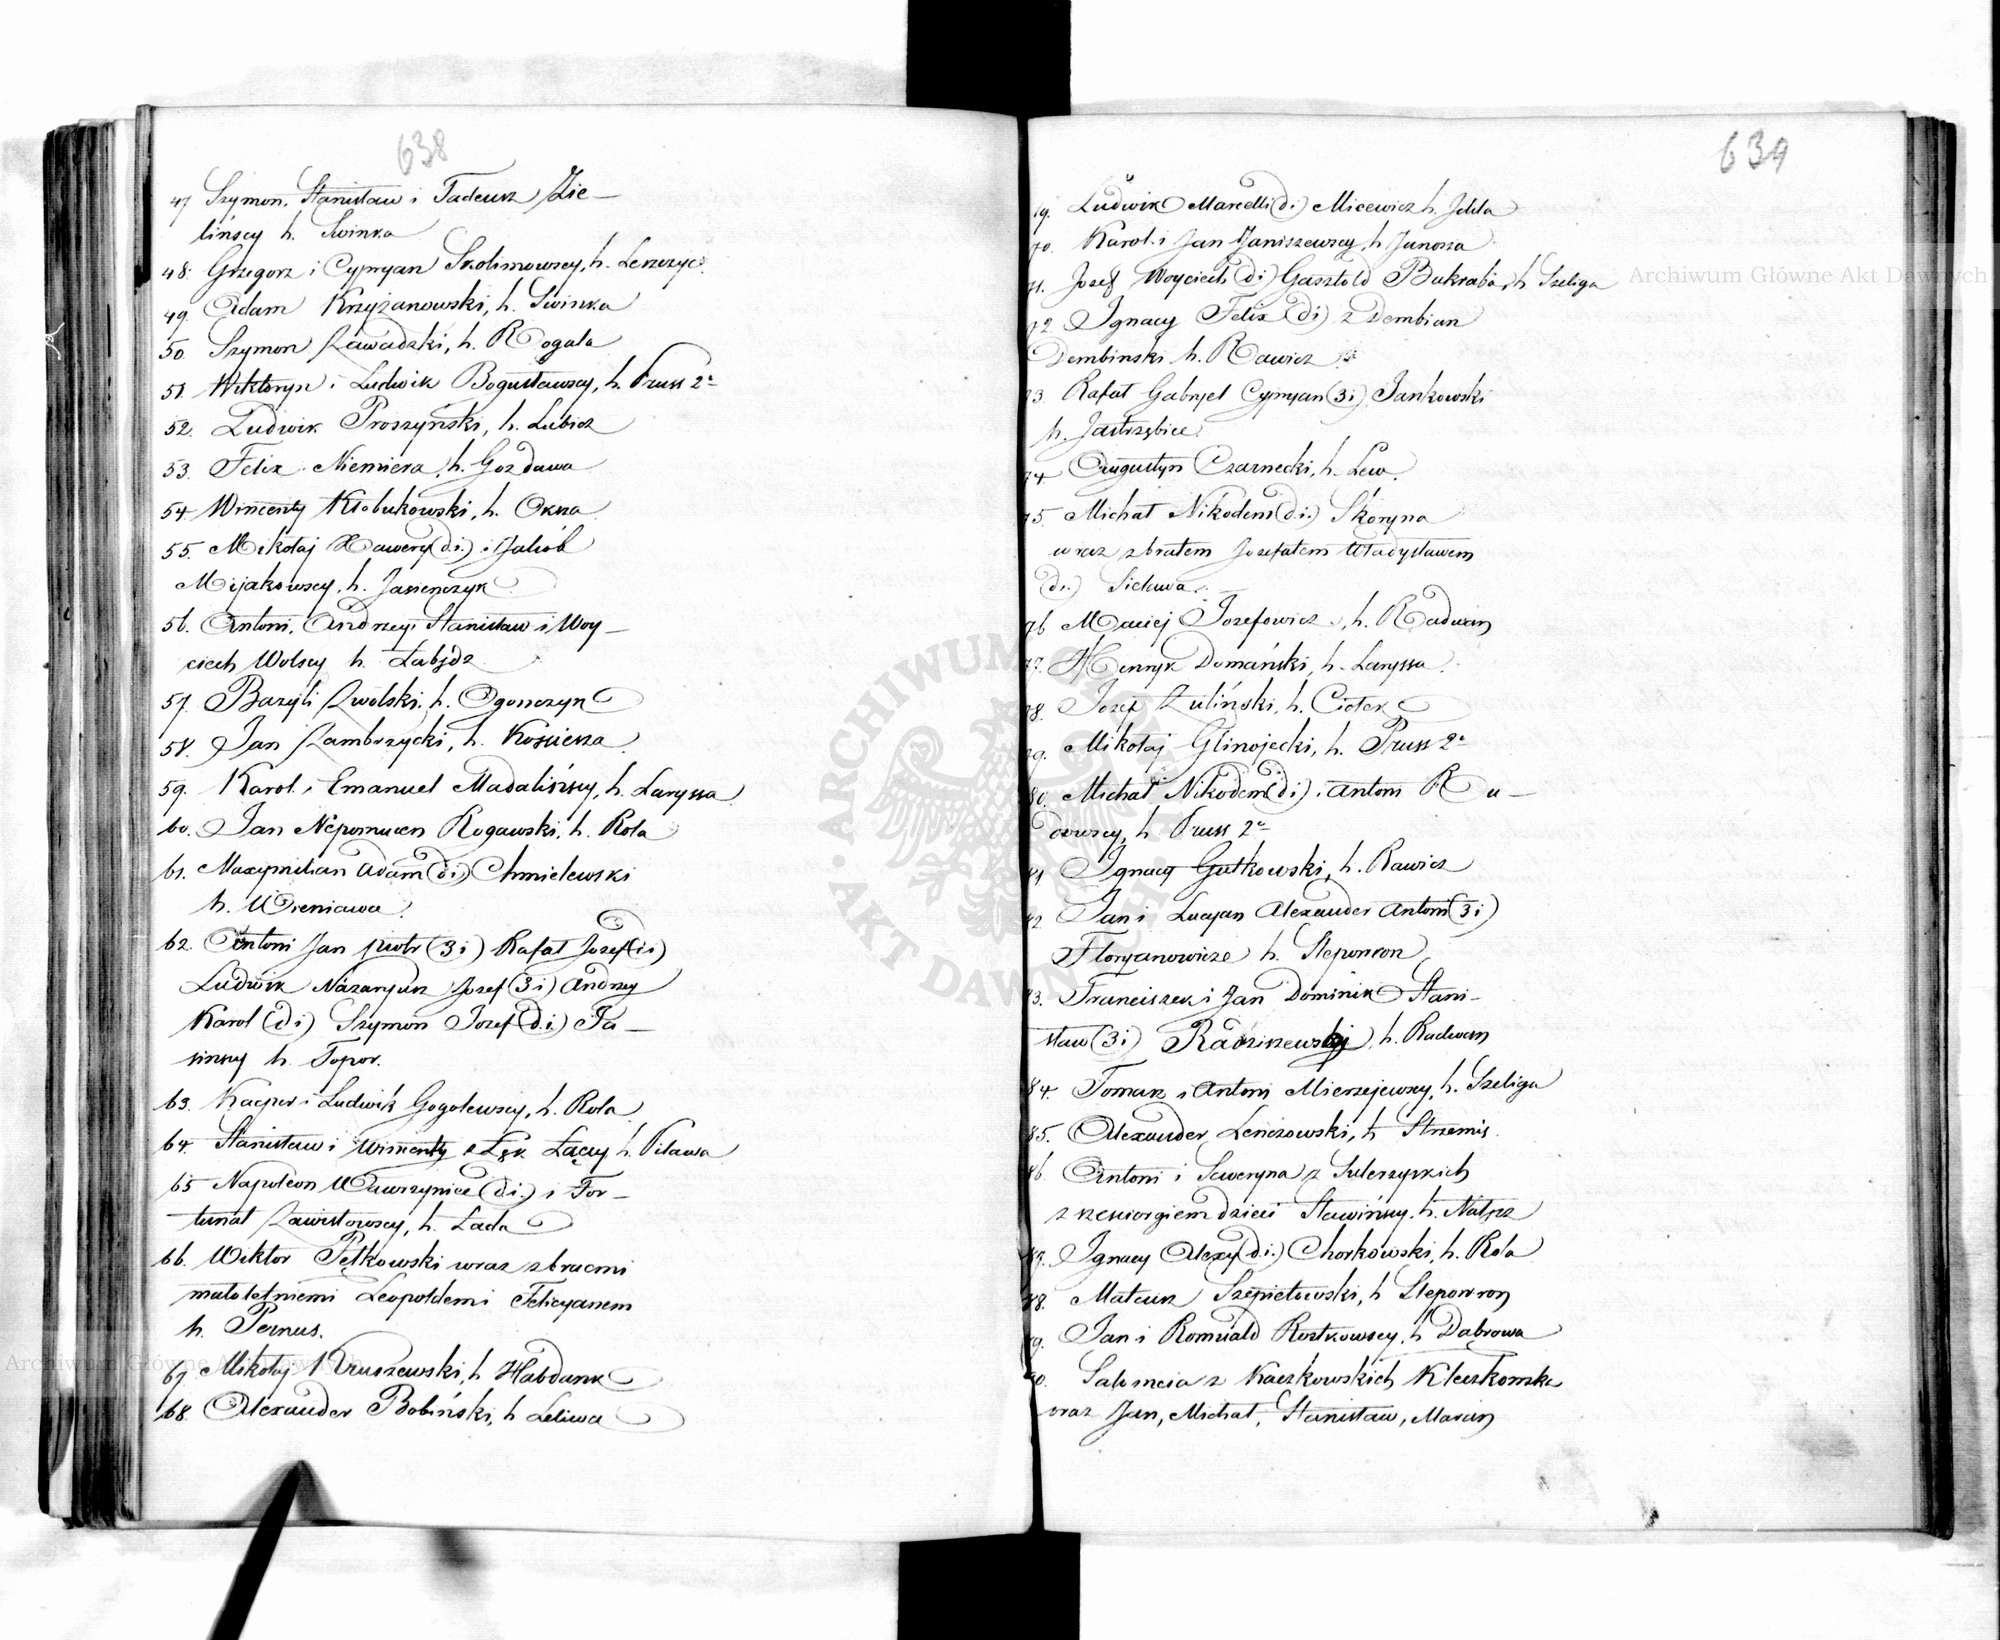 638
47 Szymon, Stanisław i Tadeusz Zie-
lińscy h. Swinka
48. Grzegorz i Cypryan Skolimowscy, h. Lerszyc.
49. Adam Krzyżanowski, h. Swinka
50. Szymon Zawadzki, h. Rogala
51. Wiktoryn i Ludwik Bogusławscy, h. Pruss 2°
52. Ludwik Proszyński, h. Lubicz
53. Felix Niemiera, h. Gozdawa
54. Wincenty Kłobukowski, h. Oksza
55. Mikołaj Xawery (d.i.) i Jakób
Mijakowscy, h. Jasieńczyk
56. Antoni, Andrzey, Stanisław i Woy-
ciech Wolscy h. Łabędź
57. Bazyli Zwolski, h. Ogończyk
58. Jan Zambrzycki, h. Kościesza
59. Karol i Emanuel Madalińscy, h. Laryssa
60. Jan Nepomucen Rogawski, h. Rola
61. Maxymilian Adam (d.i.) Chmielewski
h. Wieniawa
62. Antoni Jan Piotr (3 i) Rafał Jozef (d i)
Ludwik Nazaryusz Jozef (3 i) Andrzey
Karol (d i) Szymon Jozef (d.i.) Ja-
sińscy h. Topor.
63. Kacper i Ludwik Gogolewscy, h. Rola
64. Stanisław i Wincenty z Łąk Łąccy h. Pilawa
65 Napoleon Wawrzyniec (d i.) i For-
tunat Zawistowscy, h. Łada
66. Wiktor Pętkowski wraz z bracmi
małoletniemi Leopoldem i Felicyanem
h. Pernus.
67. Mikołaj Kruszewski, h Habdank
68. Alexander Bobiński, h Leliwa
639
69. Ludwik Marcelli (d i.) Micewicz h. Jelita
70. Karol i Jan Janiszewscy, h Junosza
71. Jozef Woyciech (d i) Gasztold Bukraba, h Szeliga
72 Ignacy Felix (d i) z Dembian
Dembinski h. Rawicz
73. Rafał Gabryel Cypryan (3 i) Jankowski
h. Jastrzębiec.
74 Augustyn Czarnecki, h. Lew.
75. Michał Nikodem (d i.) Skoryna
wraz z bratem Jozefatem Władysławem
(d i.) Sielawa.
76 Maciej Jozefowicz, h. Radwan
77. Henryk Domański, h. Laryssa.
78. Jozef Zuliński, h. Ciołek
79. Mikołaj Glinojecki, h. Pruss 2°
80. Michał Nikodem (d i) i Antoni Ru-
dowscy, h Pruss 2°
81 Ignacy Gutkowski, h. Rawicz
82 Jan i Lucyan Alexander Antoni (3 i)
Floryanowicze h. Slepowron
83. Franciszek i Jan Dominik Stani-
sław (3 i) Radziszewscy, h. Radwan
84. Tomasz i Antoni Mierzejewscy, h. Szeliga
85. Alexander Lenczowski, h Strzemię
86 Antoni i Seweryna z Sulerzyskich
z sześciorgiem dzieci Sławińscy, h. Nałęcz
87. Ignacy Alexy (d.i.) Chorkowski, h. Rola
88. Mateusz Szepietowski, h Slepowron
89. Jan i Romuald Rostkowscy, h Dąbrowa
90. Salomeia z Kaczkowskich Kleczkowska
oraz Jan, Michał, Stanisław, Marcin
Archiwum Główne Akt Dawnych
Archiwum Główne Akt Dawnych
ARCHIWUM GŁÓWNE AKT DAWNYCH